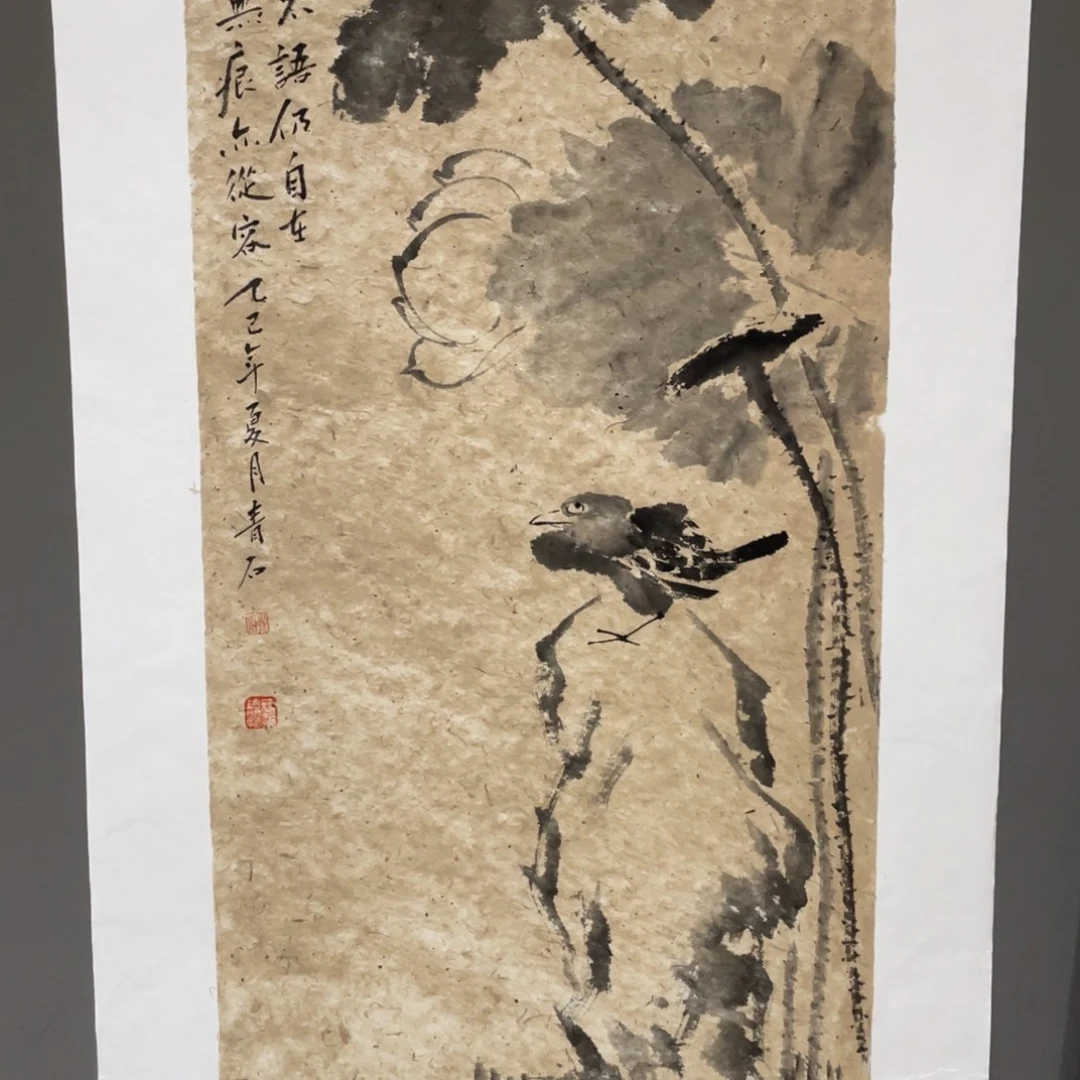 不語仍自在
無痕亦從容 乙巳年夏月青石